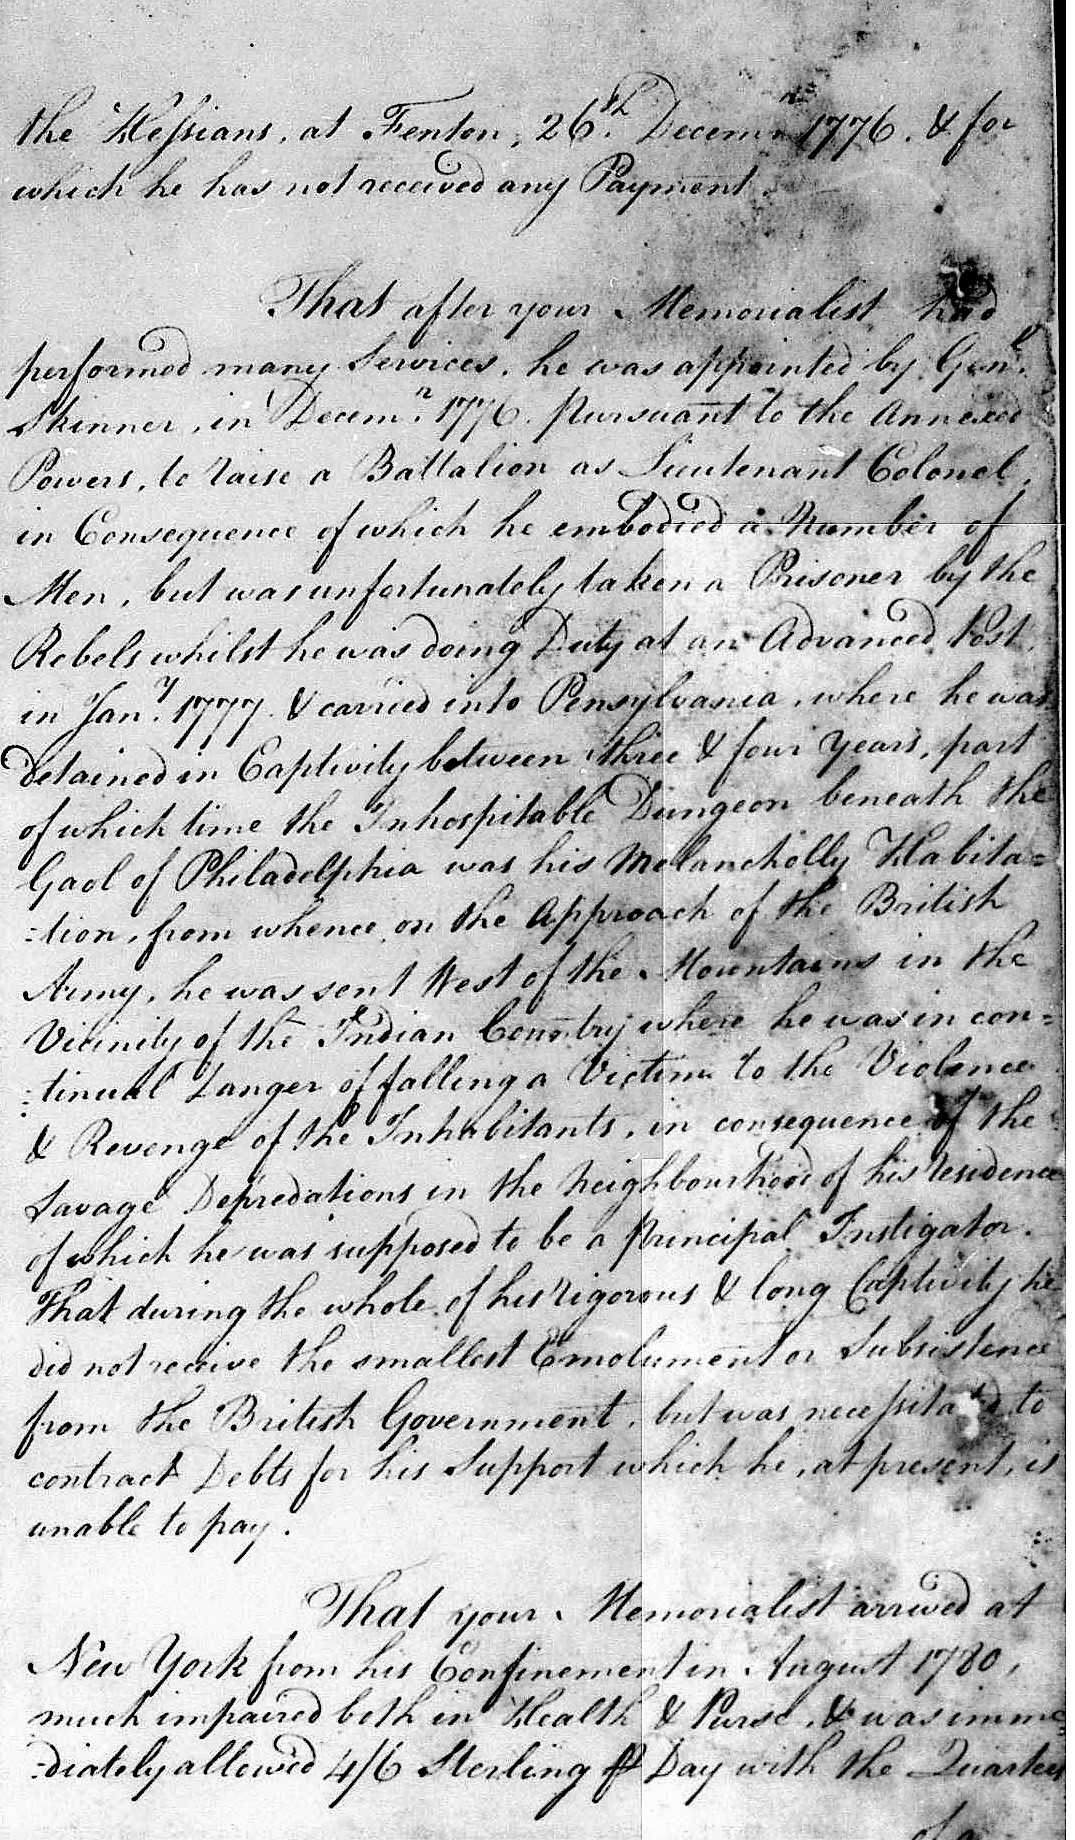 the Hessians, at Trenton, 26.th Decemr 1776. & for
which he has not received any Payment.
That after your Memorialist had
performed many Services, he was appointed by Genl.
Skinner, in Decemr. 1776. pursuant to the Annexed
Powers, to raise a Battalion as Lieutenant Colonel,
in Consequence of which he embodied a Number of
Men, but was unfortunately taken a Prisoner by the
Rebels whilst he was doing Duty at an Advanced Post,
in Jany. 1777. & carried into Pensylvania, where he was
detained in Captivity between three & four years, part
of which time the Inhospitable Dungeon beneath the
Gaol of Philadelphia was his Melancholly Habita=
=tion, from whence, on the Approach of the British
Army, he was sent West of the Mountains in the
Vicinity of the Indian Country where he was in con=
=tinual Danger of falling a Victim to the Violence
& Revenge of the Inhabitants, in consequence of the
Savage Depredations in the Neighbourhood of his Residence
of which he was supposed to be a principal Instigator.
That during the whole of his rigorous & long Captivity he
did not receive the smallest Emolument or Subsistence
from the British Government, but was necessitated to
contract Debts for his Support which he, at present, is
unable to pay.
That your Memorialist arrived at
New York from his Confinement in August 1780,
much impaired both in Health & Purse, & was imme=
=diately allowed 4/6 Sterling ⅌ Day with the Quarters
of a